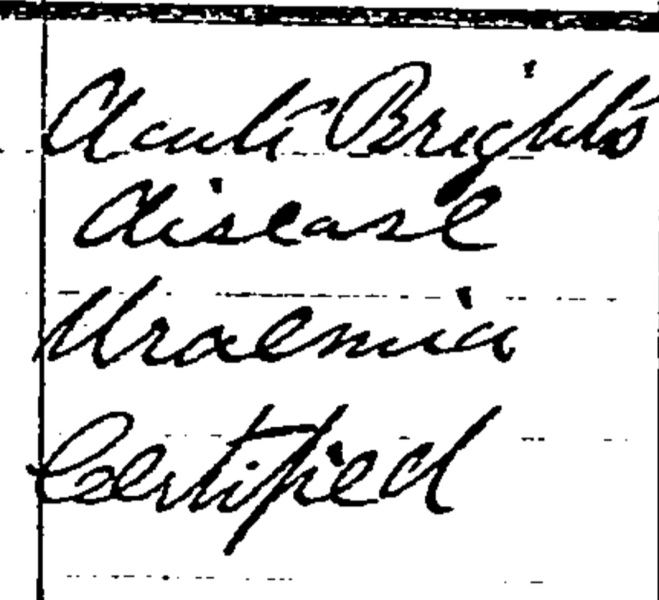 Acute Brights
disease
Uraemia
Certified